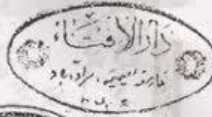 دار الافتاء
جامعہ نعیمیہ، مراد آباد